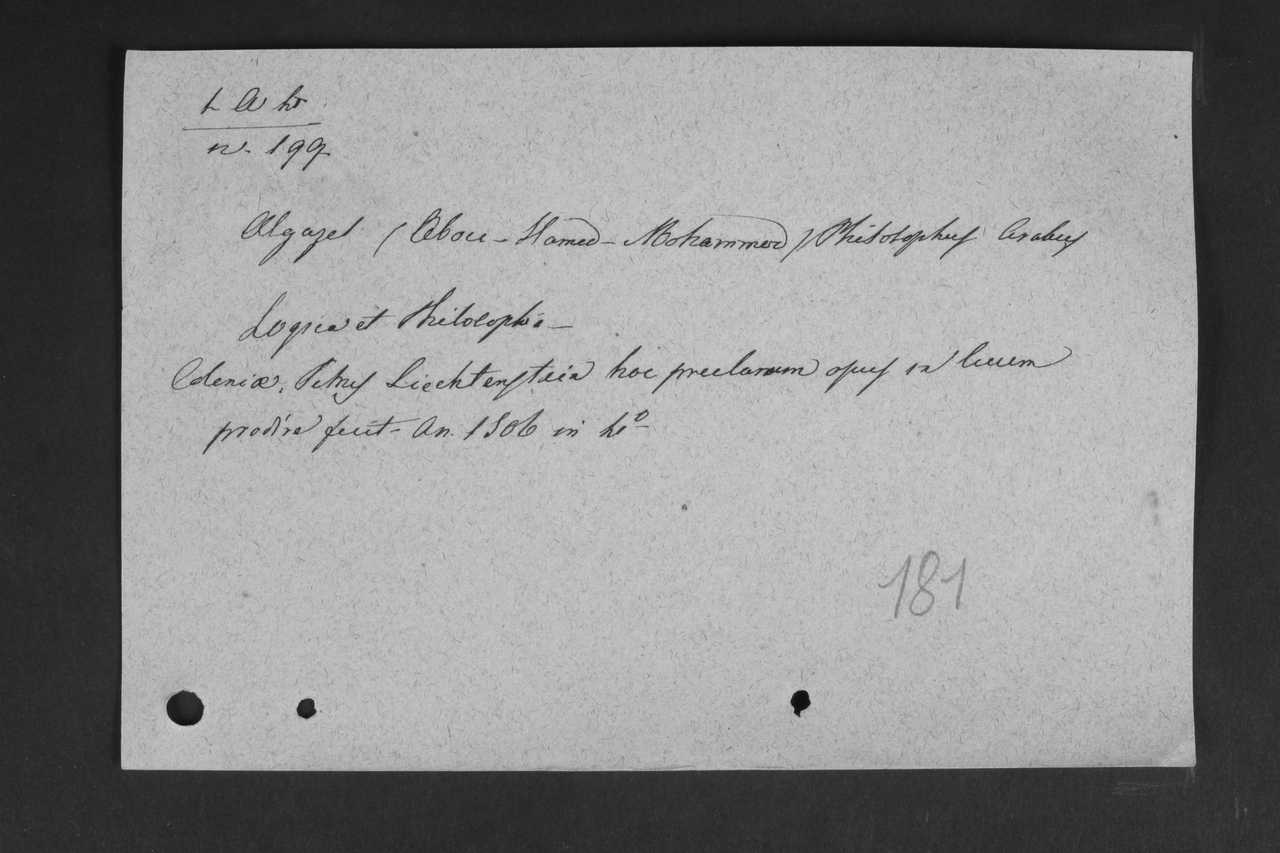 L A h
n. 199
Algazel (Abou-Hamed-Mohammed) Philosophus Arabus
Logica et Philosophia
Coleniæ, Petrus Liechtenstein hoc preclarum opus in lucem
prodire fecit. An. 1506 in 4º
181